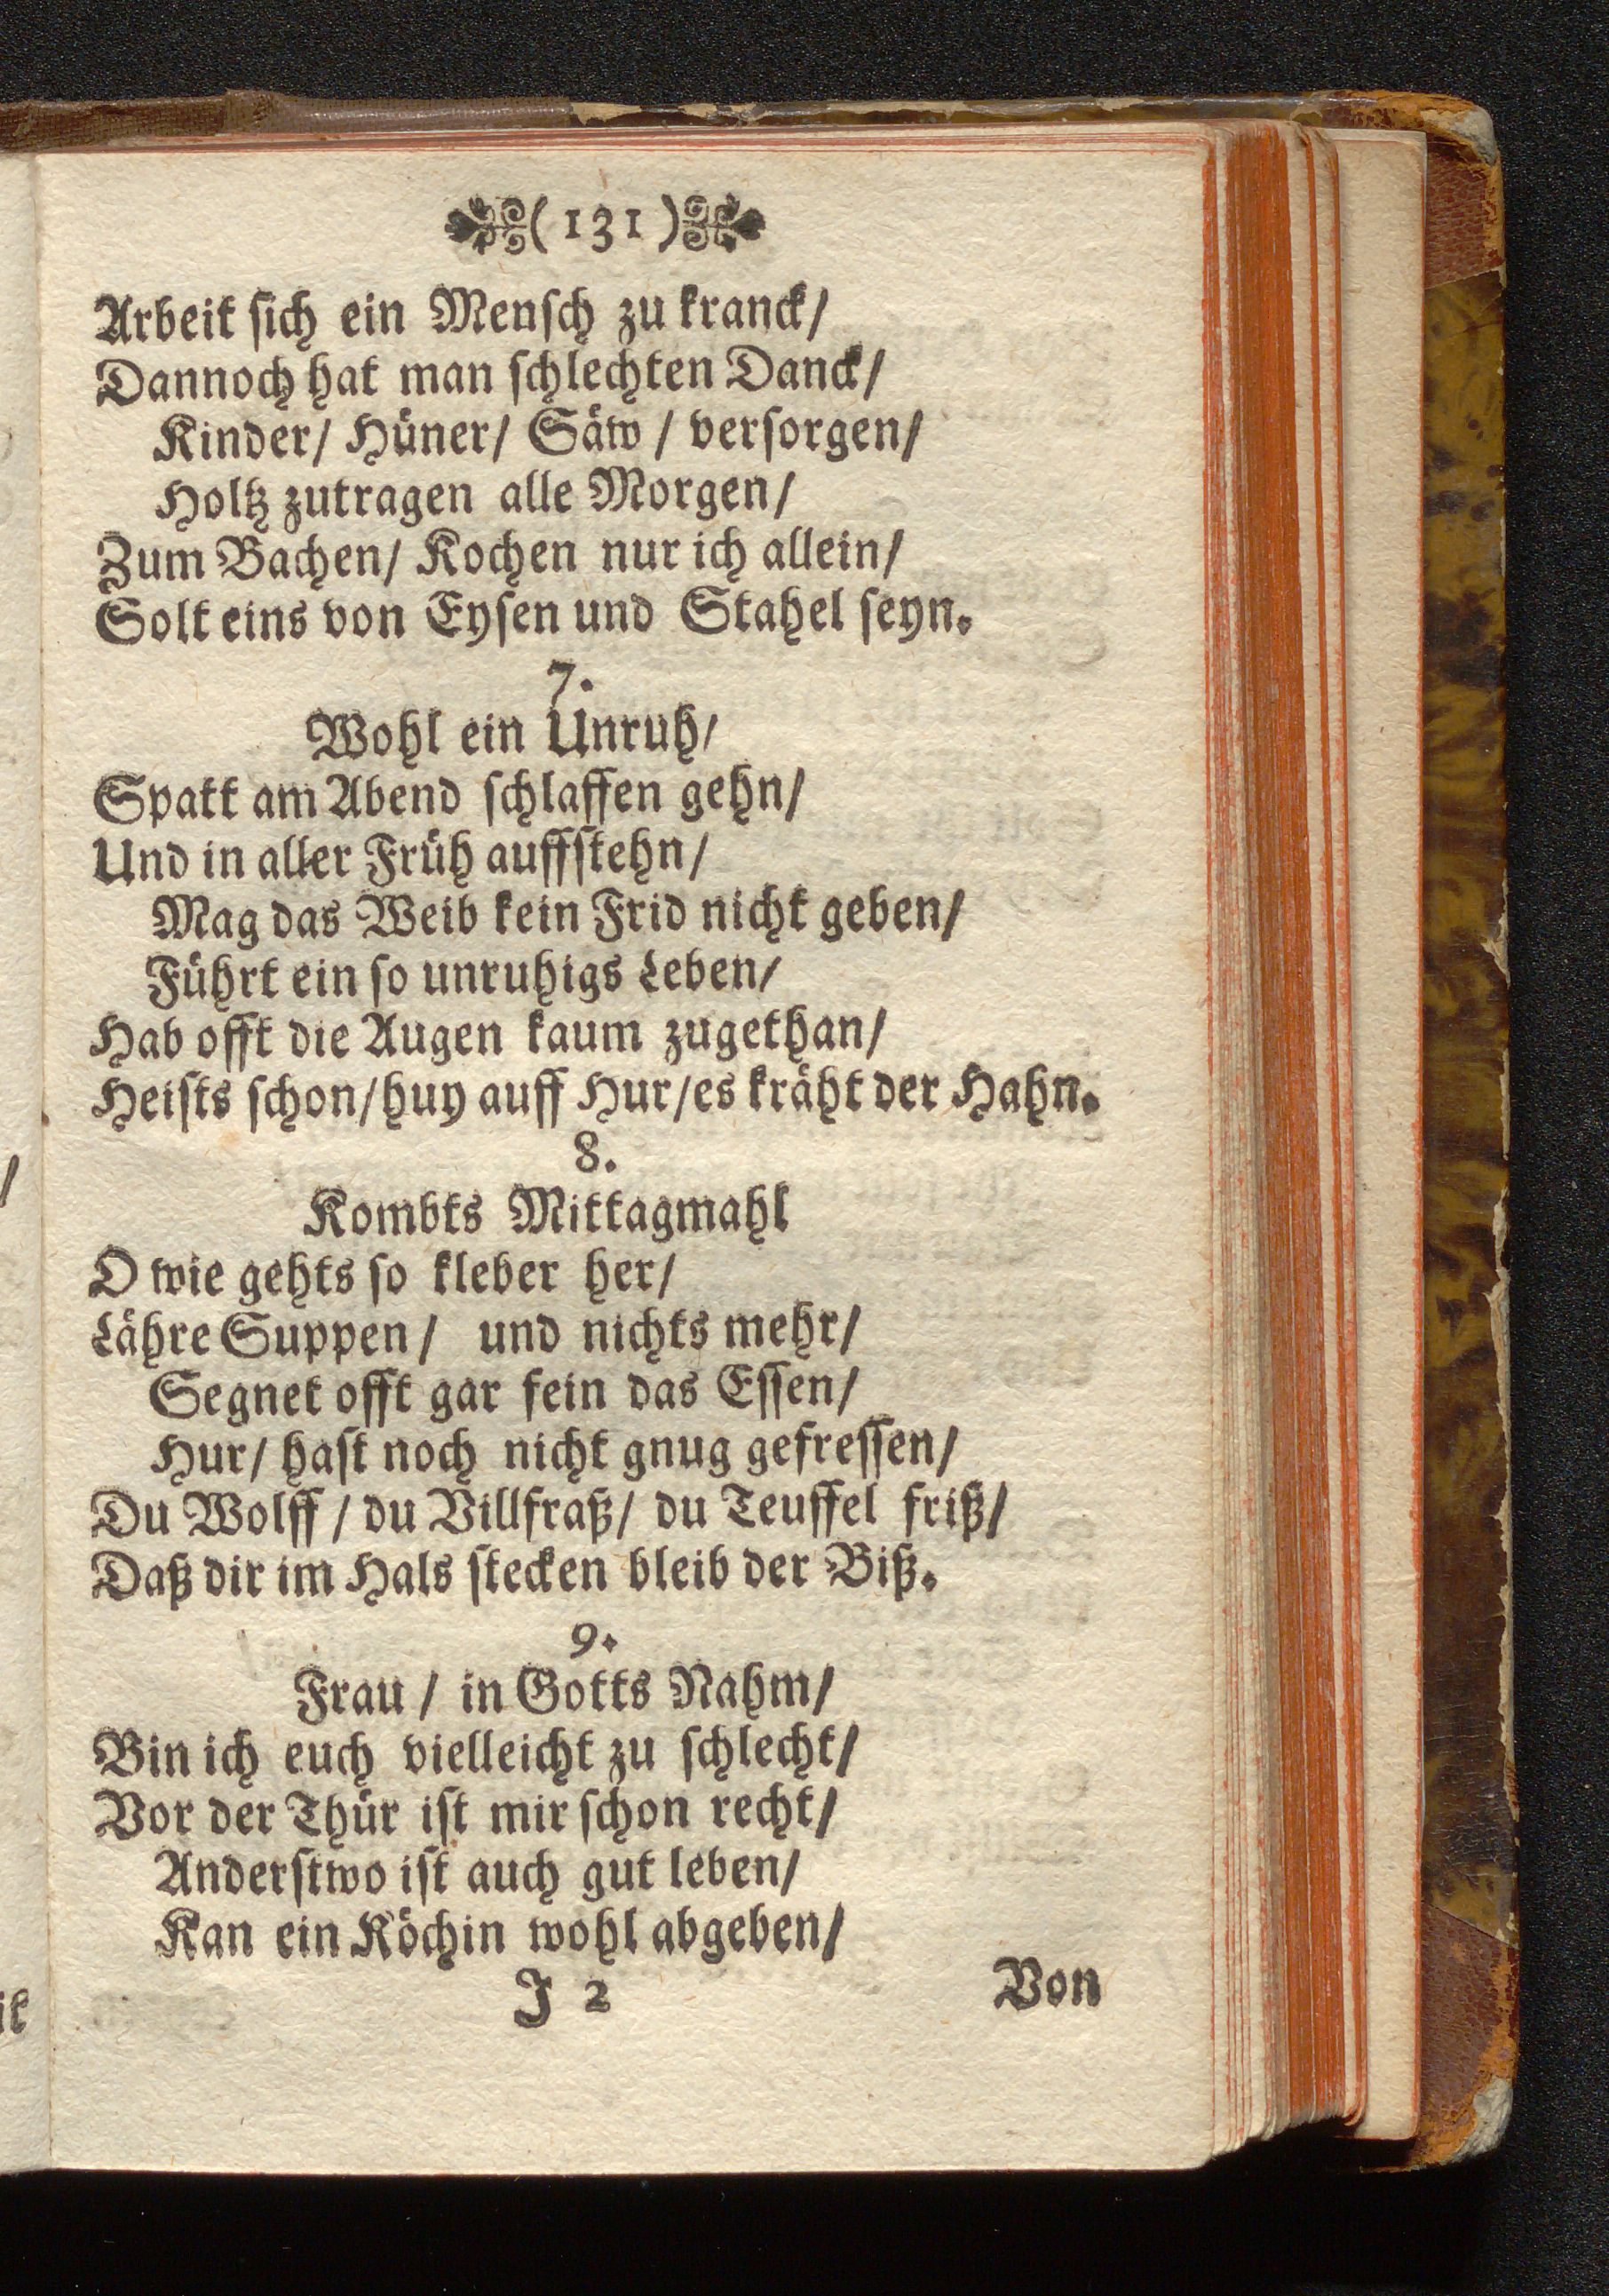 ( 131 )
Arbeit sich ein Mensch zu kranck/
Dannoch hat man schlechten Danck/
Kinder/ Hüner/ Säw / versorgen/
Holtz zutragen alle Morgen/
Zum Bachen/ Kochen nur ich allein/
Solt eins von Eysen und Stahel seyn.
7.
Wohl ein Unruh/
Spatt am Abend schlaffen gehn/
Und in aller Früh auffstehn/
Mag das Weib kein Frid nicht geben/
Führt ein so unruhigs Leben/
Hab offt die Augen kaum zugethan/
Heists schon/huy auff Hur/es kräht der Hahn.
8.
Kombts Mittagmahl
O wie gehts so kleber her/
Lähre Suppen/ und nichts mehr/
Segnet offt gar fein das Essen/
Hur/ hast noch nicht gnug gefressen/
Du Wolff / du Villfraß/ du Teuffel friß/
Daß dir im Hals stecken bleib der Biß.
9.
Frau / in Gotts Nahm/
Bin ich euch vielleicht zu schlecht/
Vor der Thür ist mir schon recht/
Anderstwo ist auch gut leben/
Kan ein Köchin wohl abgeben/
J 2 Von